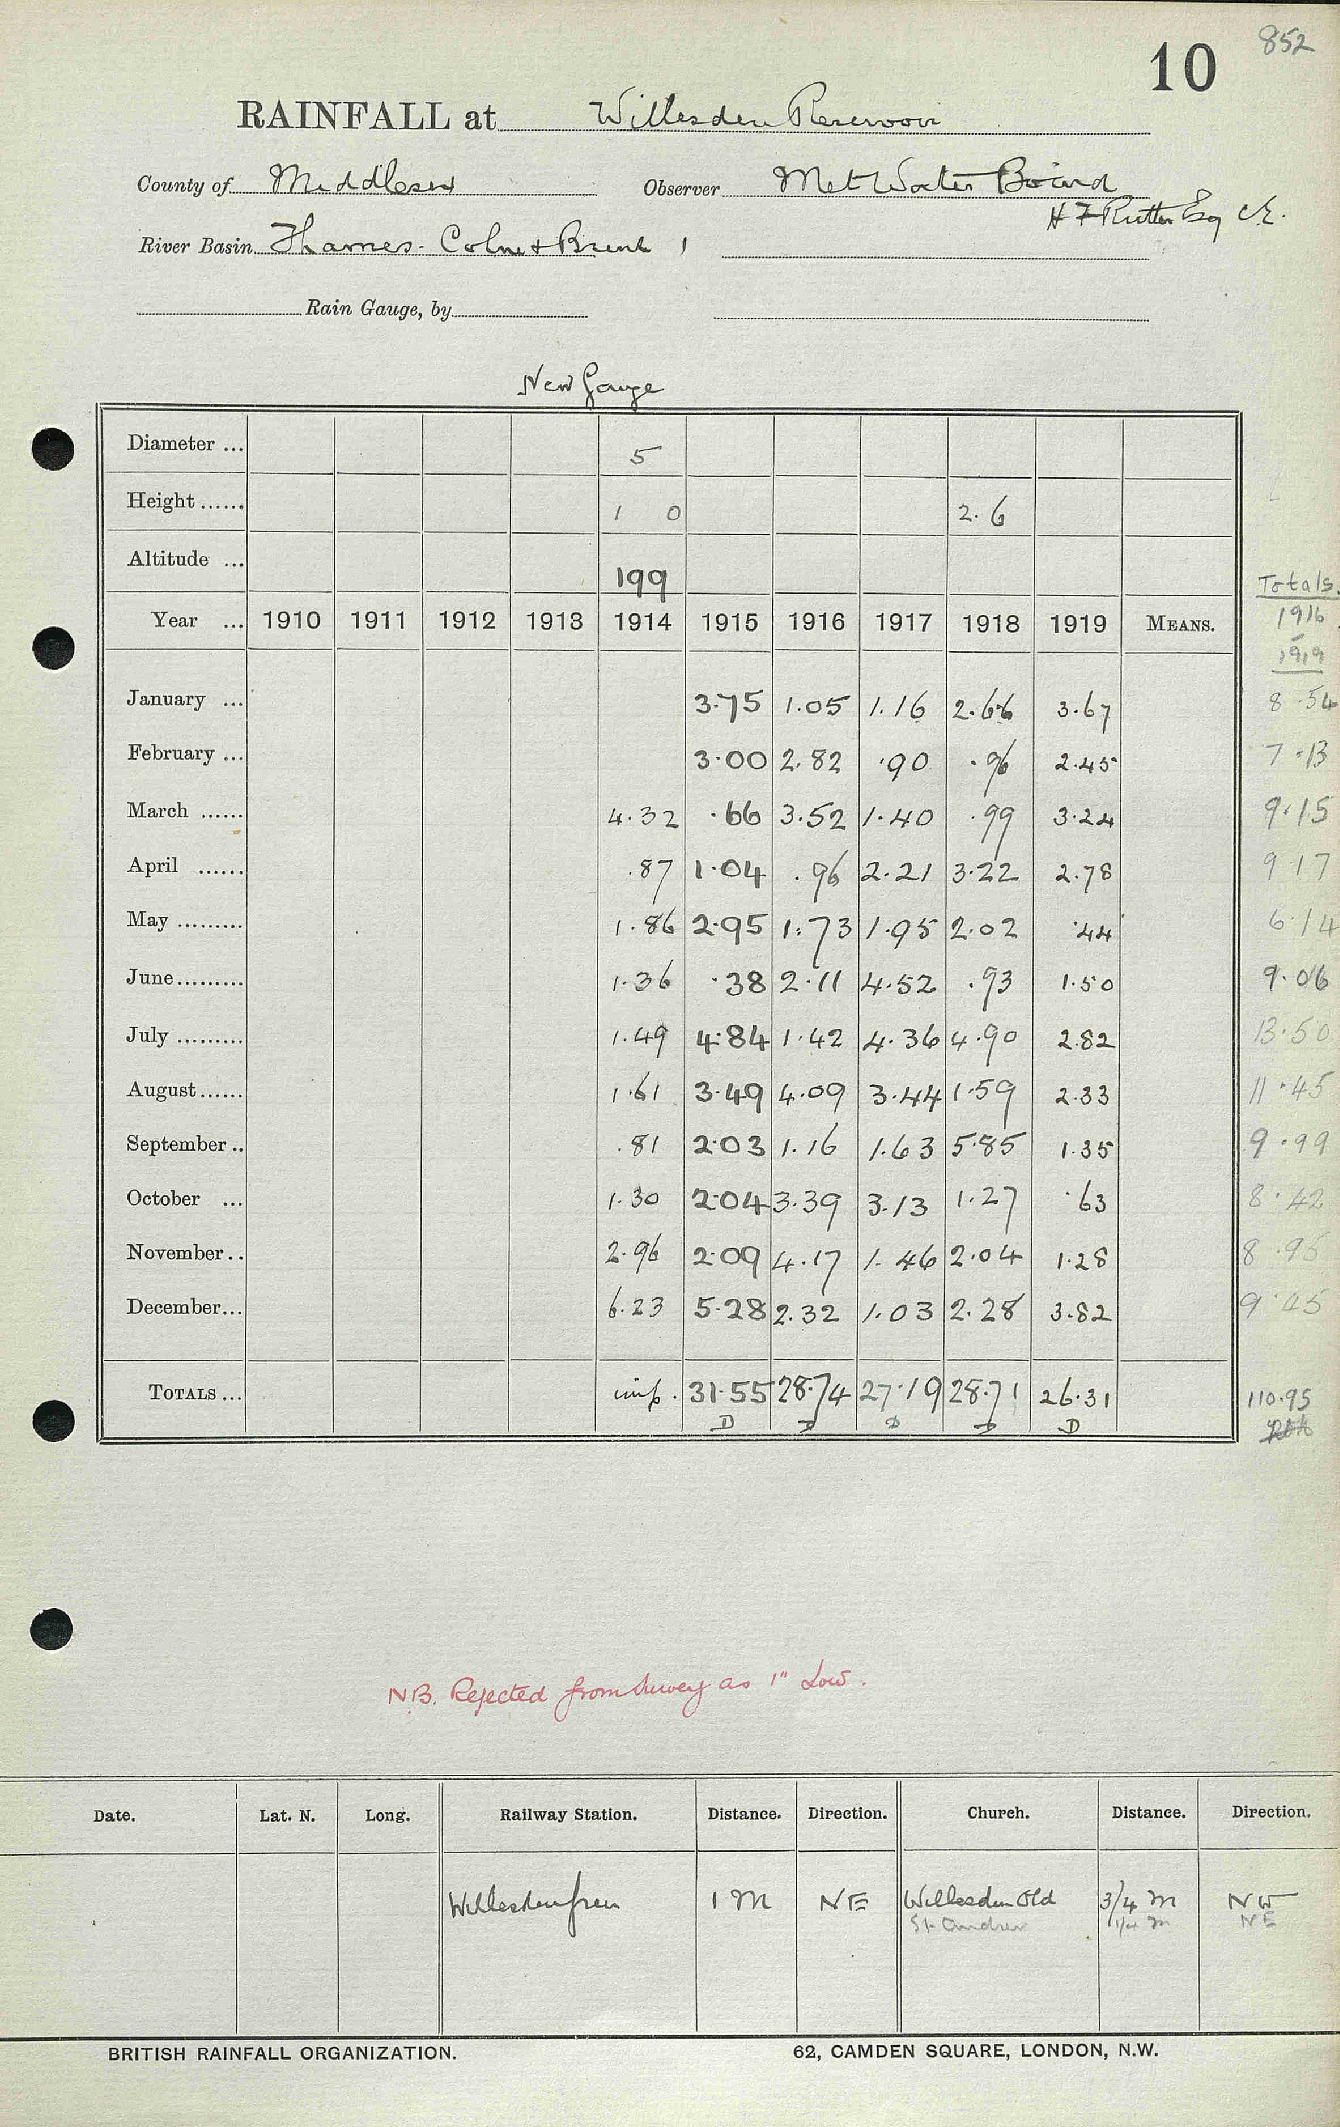 852
10
RAINFALL at Willesden Reservoir
County of Middlesex Observer Met Water Board
H F Rutter Esq C.E.
River Basin Thames - Colne & Brent 1
Rain Gauge, by
New Gauge
Diameter ... 5
Height ...... 1 0 2.6
Altitude ... 199
Totals
Year ... 1910 1911 1912 1913 1914 1915 1916 1917 1918 1919 MEANS. 1916
- 1919
January ... 3.75 1.05 1.16 2.66 3.67 8.54
February ... 3.00 2.82 .90 .96 2.45 7.13
March ...... 4.32 .66 3.52 1.40 .99 3.24 9.15
April ...... .87 1.04 .96 2.21 3.22 2.78 9.17
May ......... 1.86 2.95 1.73 1.95 2.02 .44 6.14
June......... 1.36 .38 2.11 4.52 .93 1.50 9.06
July ......... 1.49 4.84 1.42 4.36 4.90 2.82 13.50
August...... 1.61 3.49 4.09 3.44 1.59 2.33 11.45
September .. .81 2.03 1.16 1.63 5.85 1.35 9.99
October ... 1.30 2.04 3.39 3.13 1.27 .63 8.42
November .. 2.96 2.09 4.17 1.46 2.04 1.28 8.95
December... 6.23 5.28 2.32 1.03 2.28 3.82 9.45
TOTALS ... imp. 31.55 28.74 27.19 28.71 26.31 110.95
D D D D D
NB. Rejected from Survey as 1" Low.
Date. Lat. N. Long. Railway Station. Distance. Direction. Church. Distance. Direction.
Willesden Green 1 M NE Willesden Old 3/4 m NW
St Andrew 1/4 m NE
BRITISH RAINFALL ORGANIZATION. 62, CAMDEN SQUARE, LONDON, N.W.